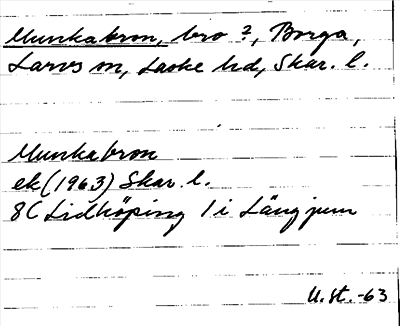 Munkabron, bro ?, Borga,
Larvs sn, Laske hd, Skar. l.
Munkabron
ek (1963) Skar l.
8C Lidköping 1 i Längjum
U.St. -63